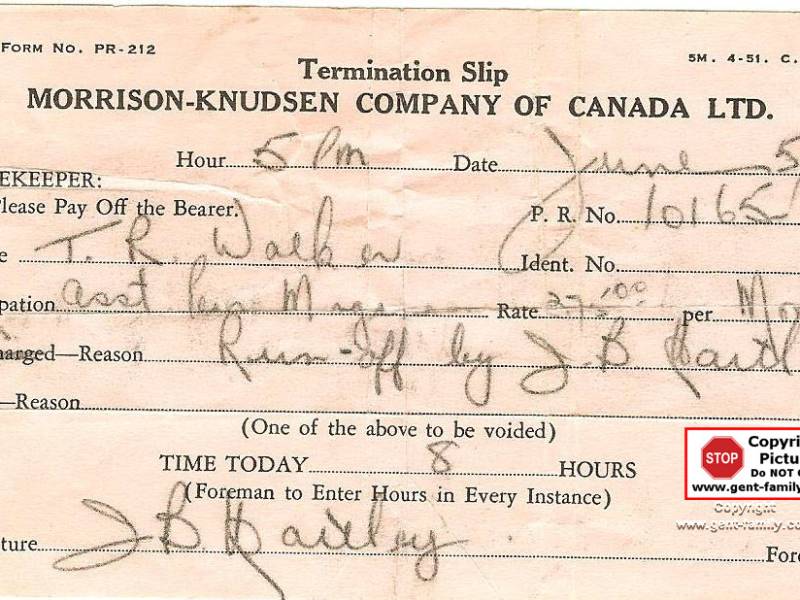 FORM No. PR-212
5M. 4-51. C.
Termination Slip
MORRISON-KNUDSEN COMPANY OF CANADA LTD.
Hour 5 Pm Date June 5
EKEEPER:
Please Pay Off the Bearer. P. R. No. 10165
e T. R. Walker Ident. No.
pation asst Rate per Mo
harged—Reason Run-off by J B Hartl
—Reason
(One of the above to be voided)
TIME TODAY 8 HOURS
(Foreman to Enter Hours in Every Instance)
ture J B Hartley Fore
STOP
Copyri
Pictu
Do NOT
www.gent-family
Copyright
www.gent-family.co